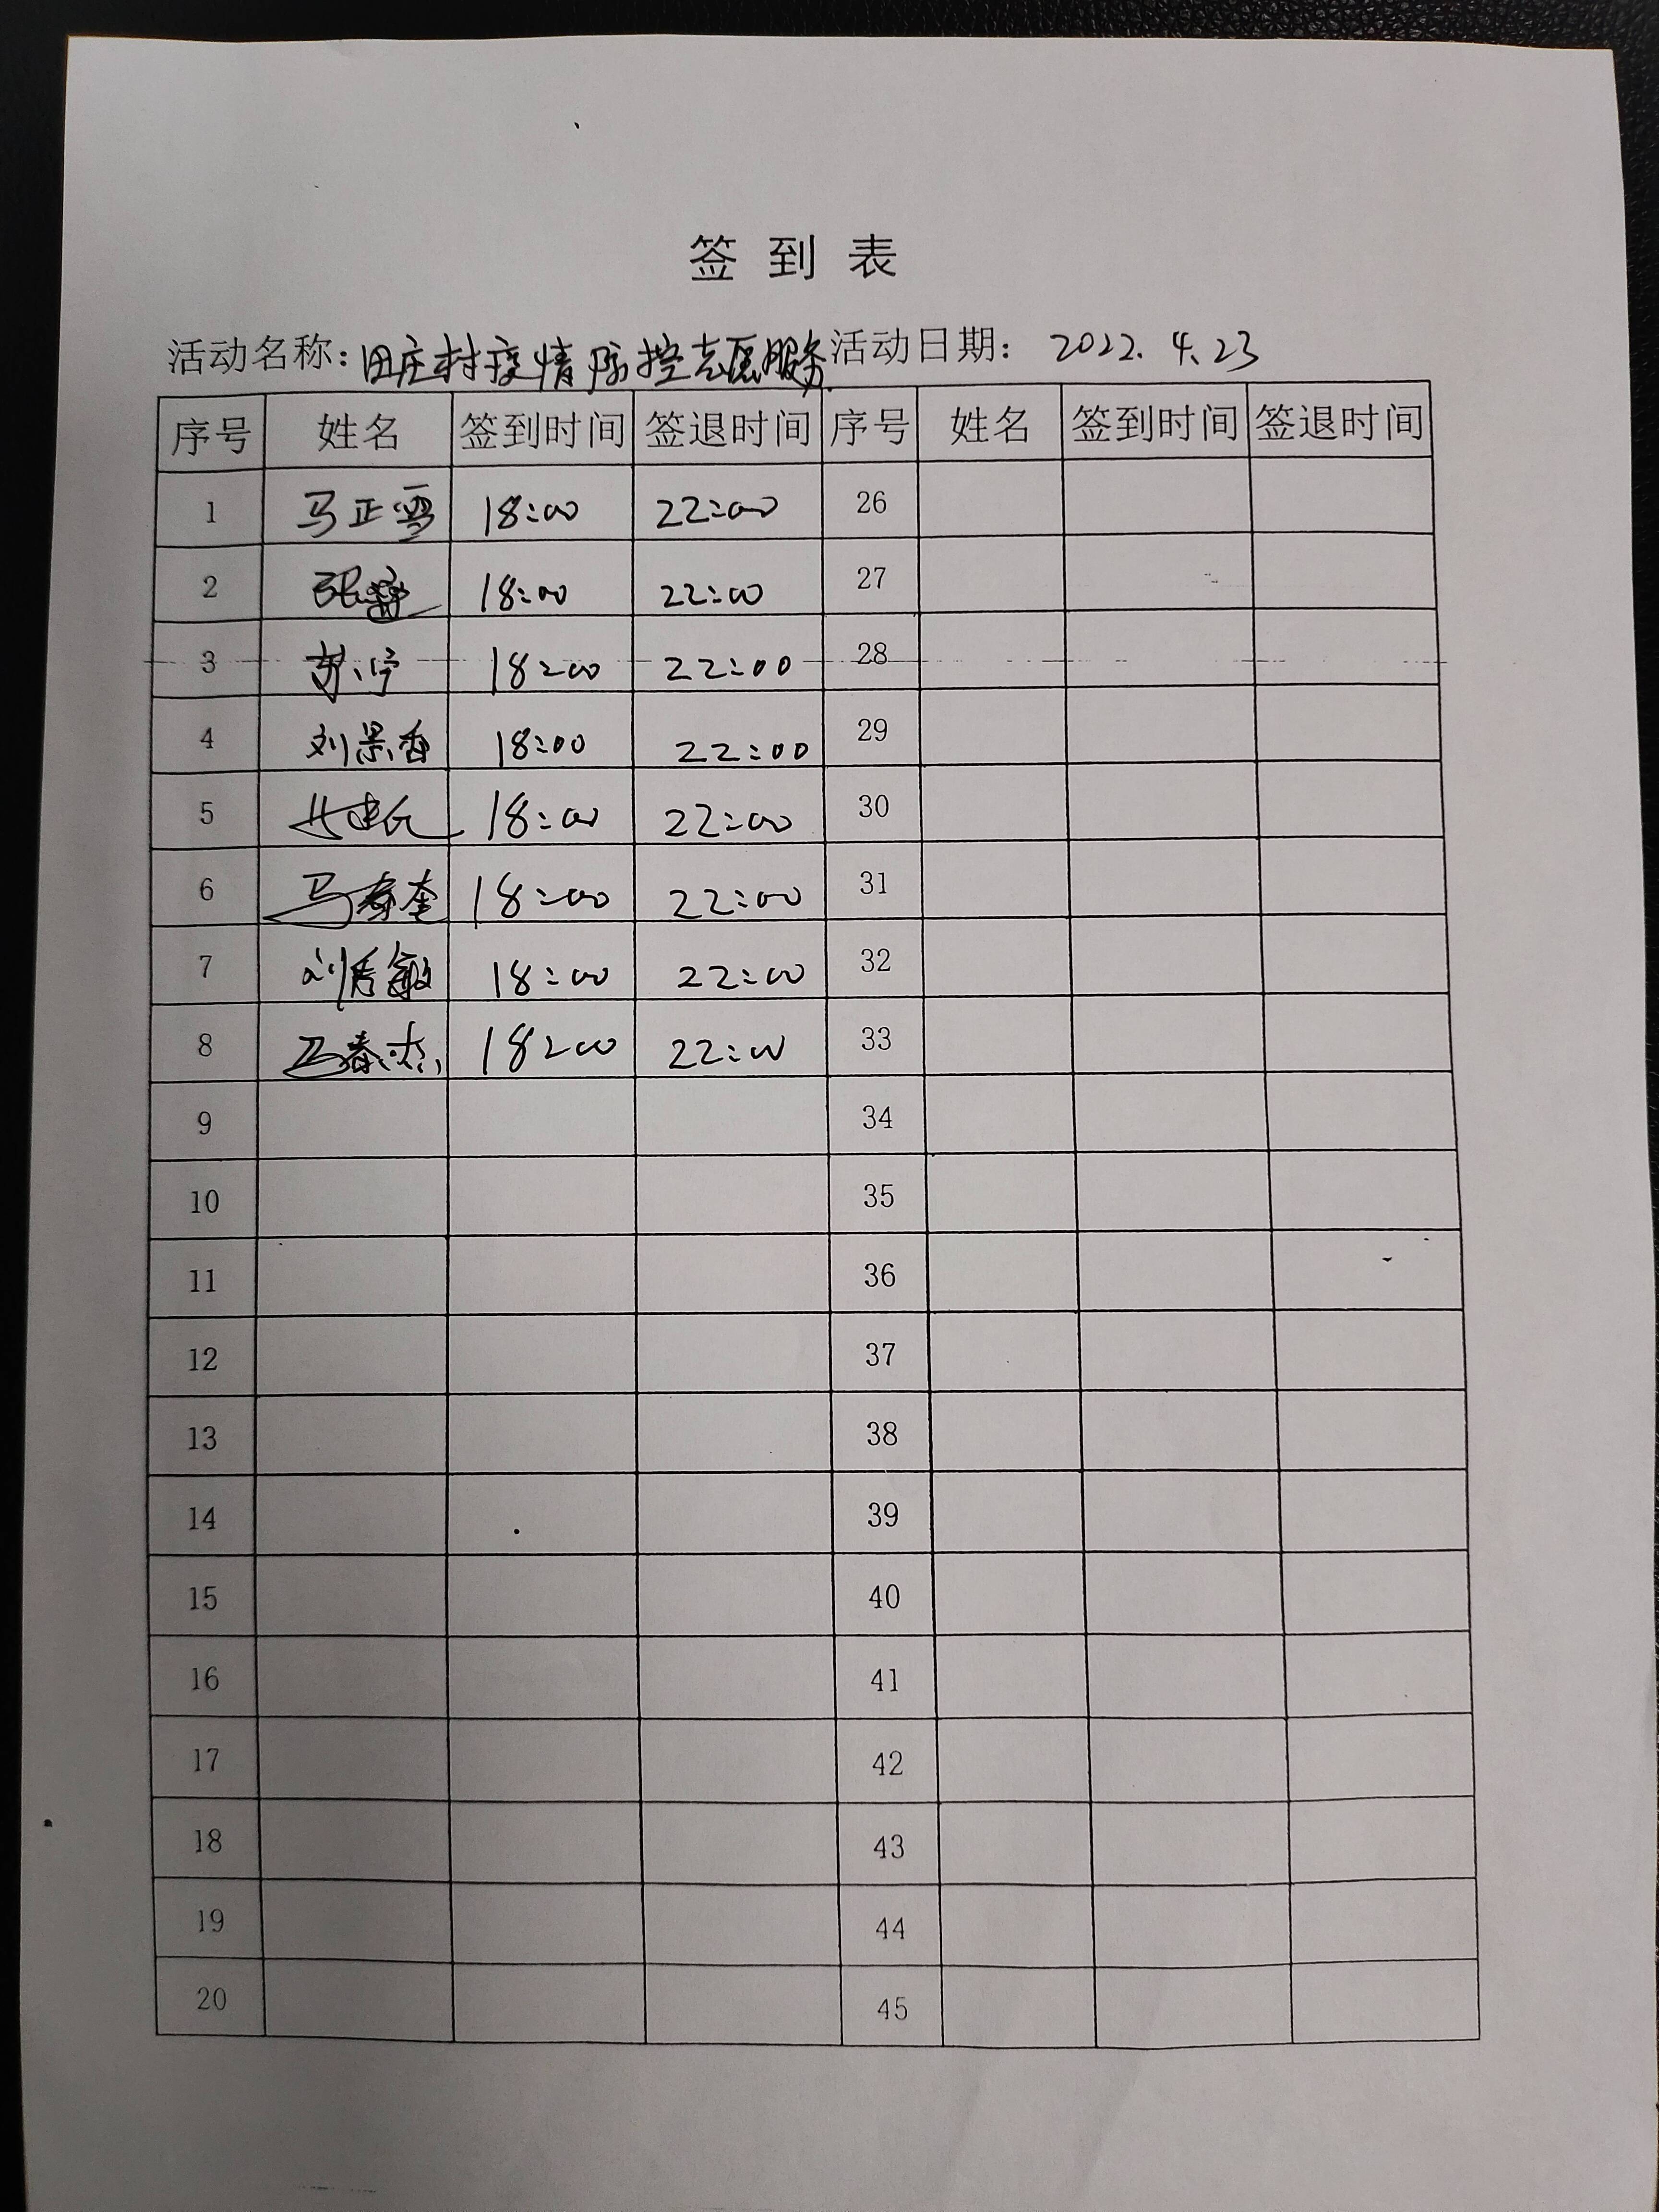 签到表
活动名称：田庄村疫情防控志愿服务 活动日期：2022.4.23
序号 姓名 签到时间 签退时间 序号 姓名 签到时间 签退时间
1 马正雪 18:00 22:00 26
2 张 18:00 22:00 27
3 苏宁 18:00 22:00 28
4 刘景香 18:00 22:00 29
5 18:00 22:00 30
6 马春奎 18:00 22:00 31
7 刘秀敏 18:00 22:00 32
8 马春杰 18:00 22:00 33
9 34
10 35
11 36
12 37
13 38
14 39
15 40
16 41
17 42
18 43
19 44
20 45